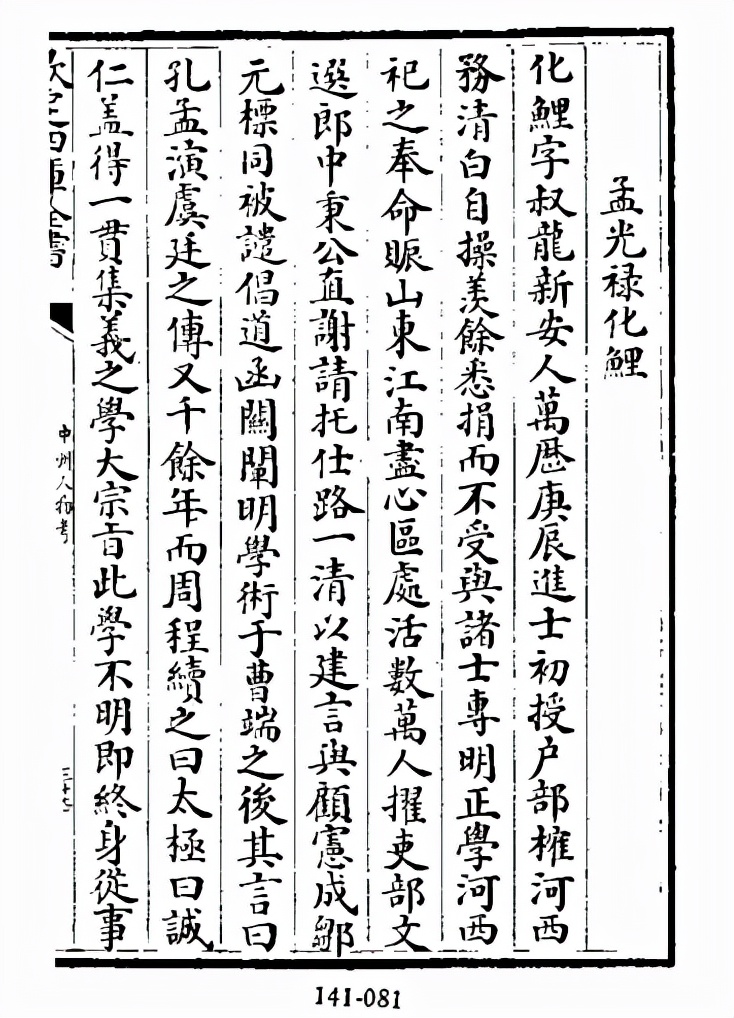 孟光禄化鯉
化鯉字叔龍新安人萬歴庚辰進士初授户部榷河西
務清白自操羡餘悉捐而不受與諸士專明正學河西
祀之奉命賑山東江南盡心區處活數萬人擢吏部文
選郎中秉公直謝請托仕路一清以建言與顧憲成鄒
元標同被譴倡道函關闡明學術于曹端之後其言曰
孔孟演虞廷之傳又千餘年而周程續之曰太極曰誠
仁盖得一貫集義之學大宗旨此學不明即終身從事
欽定四庫全書
中州人物考
三十七
141-081